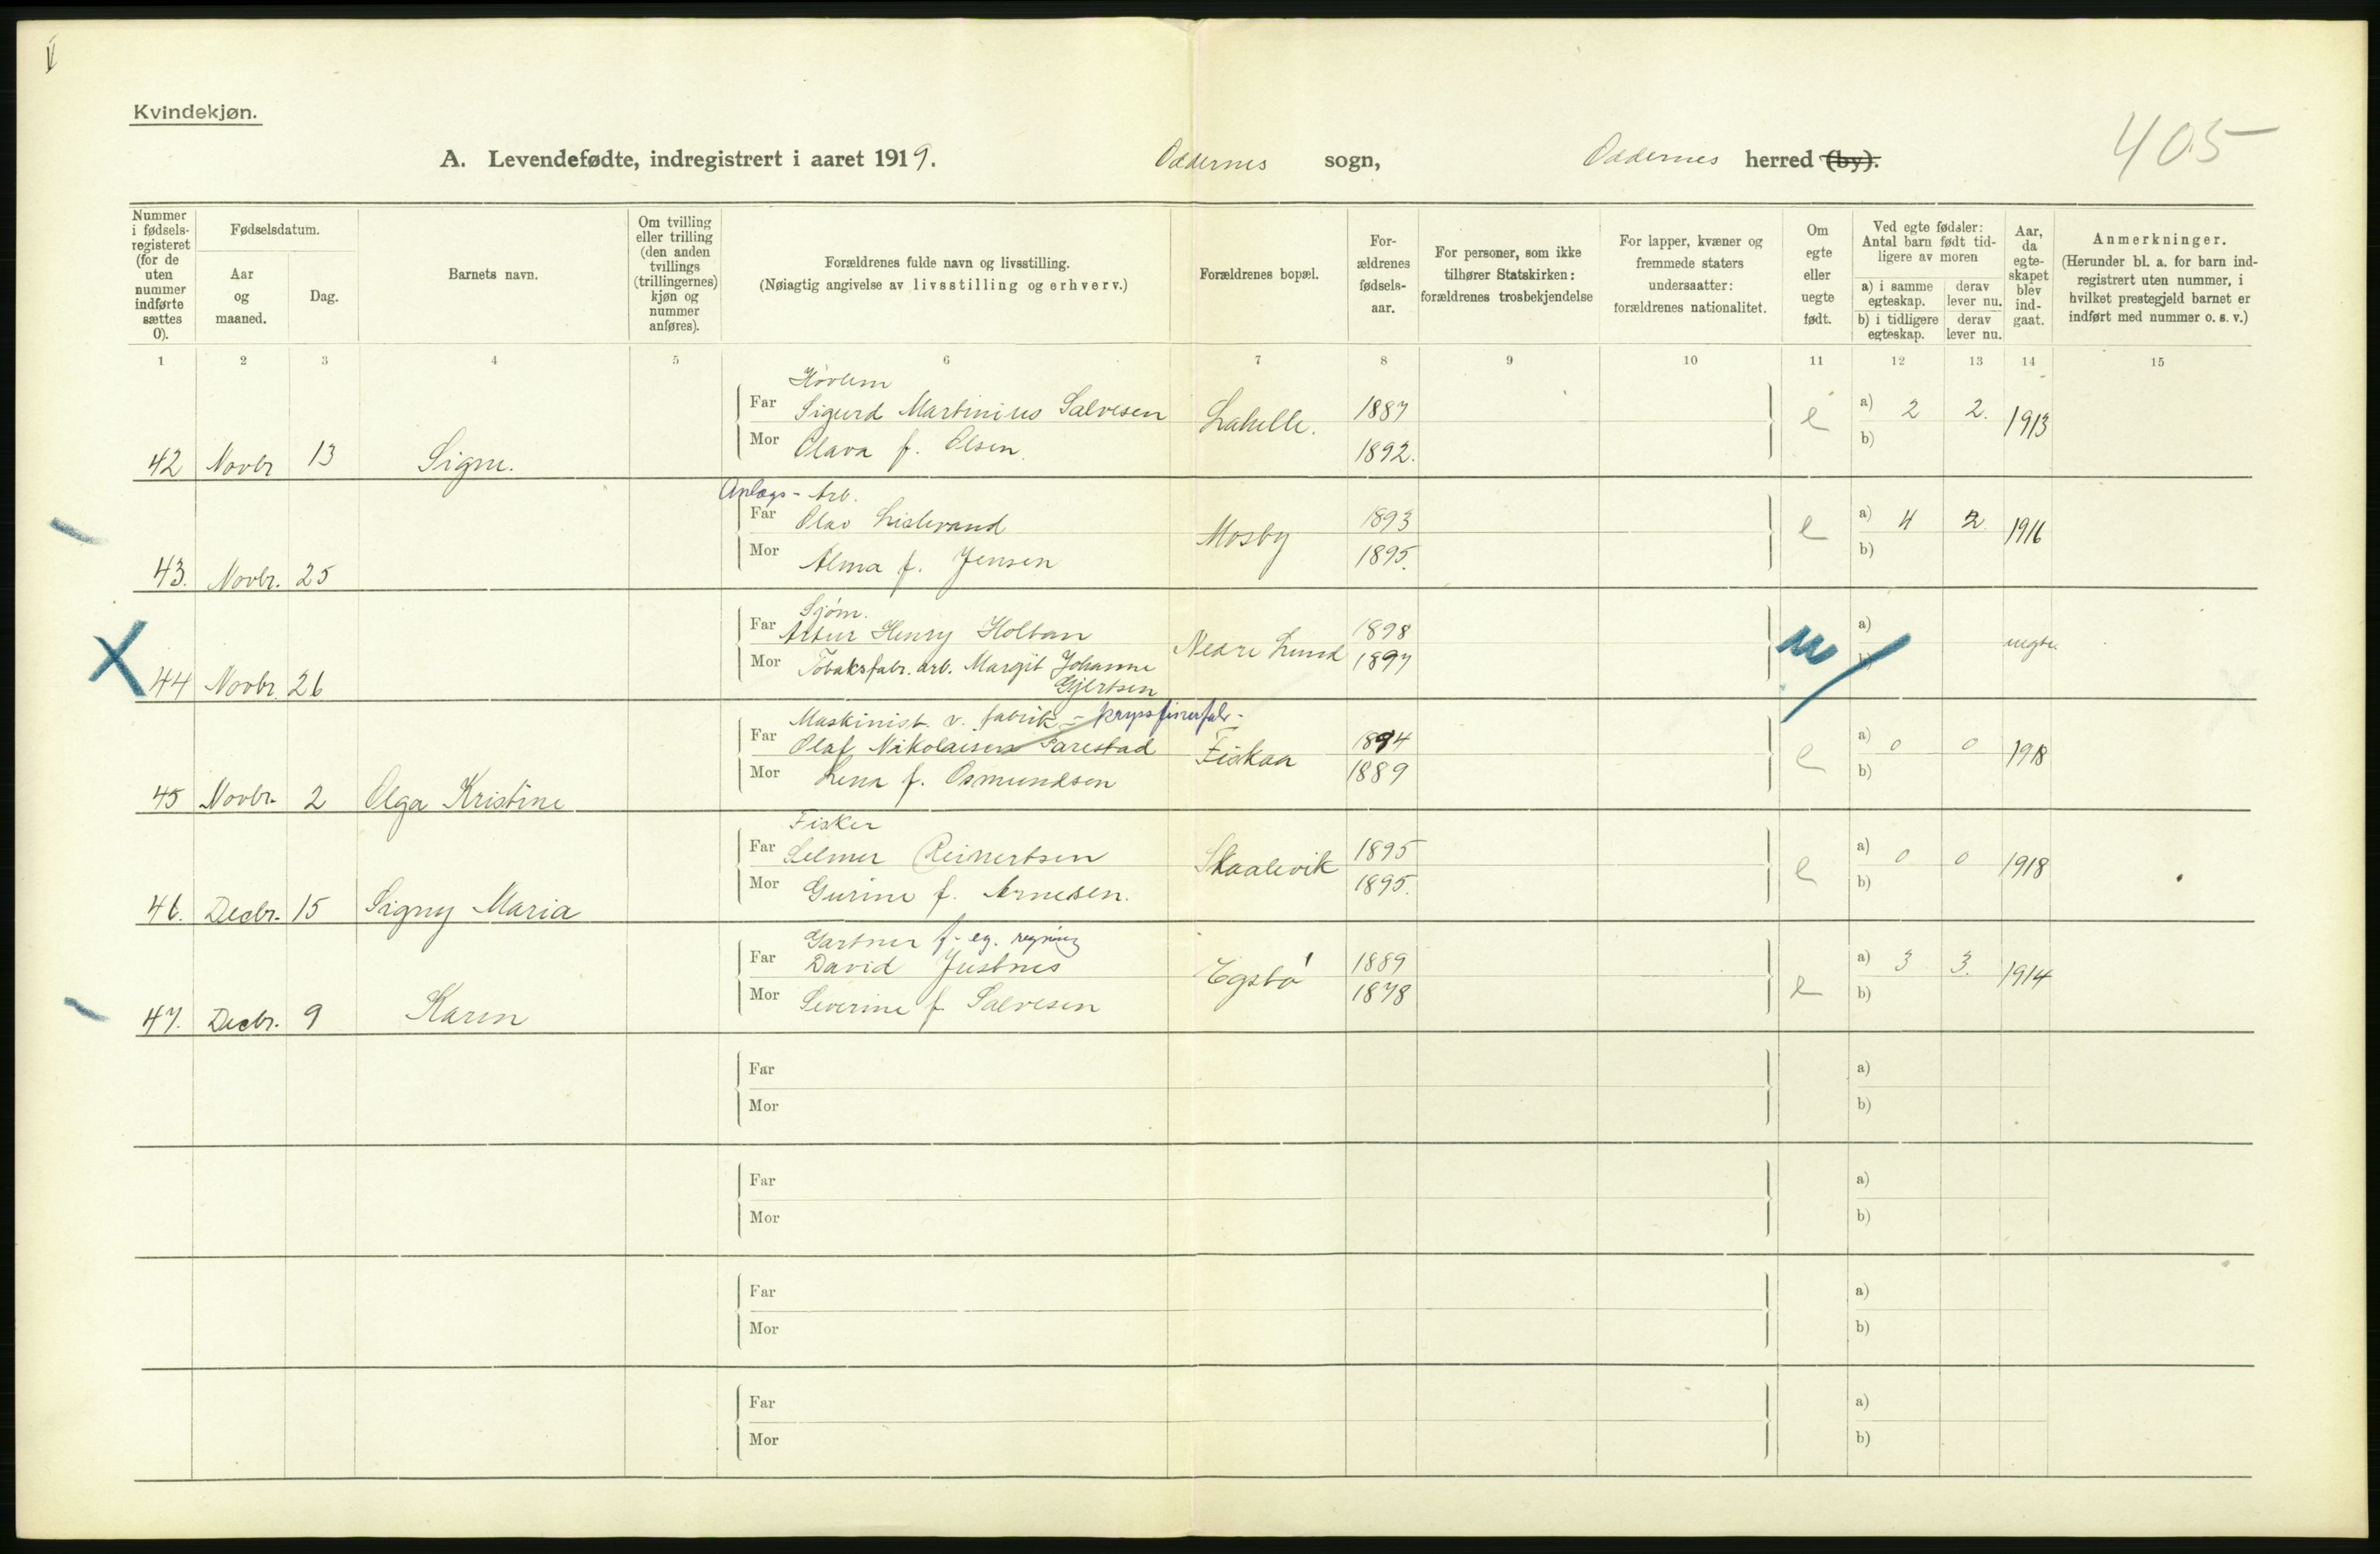 Kvindekjøn.
A. Levendefødte, indregistrert i aaret 1919. Oddernes sogn, Oddernes herred (by).
405
Nummer i fødsels-registeret (for de uten nummer indførte sættes 0).
Fødselsdatum.
Aar og maaned.
Dag.
Barnets navn.
Om tvilling eller trilling (den anden tvillings (trillingernes) kjøn og nummer anføres).
Forældrenes fulde navn og livsstilling.
(Nøiagtig angivelse av livsstilling og erhverv.)
Forældrenes bopæl.
For-ældrenes fødsels-aar.
For personer, som ikke tilhører Statskirken: forældrenes trosbekjendelse
For lapper, kvæner og fremmede staters undersaatter: forældrenes nationalitet.
Om egte eller uegte født.
Ved egte fødsler: Antal barn født tid-ligere av moren
a) i samme egteskap.
derav lever nu.
b) i tidligere egteskap.
derav lever nu.
Aar, da egte-skapet blev ind-gaat.
Anmerkninger.
(Herunder bl. a. for barn ind-registrert uten nummer, i hvilket prestegjeld barnet er indført med nummer o. s. v.)
1 2 3 4 5 6 7 8 9 10 11 12 13 14 15
Far Sigurd Martinius Salvesen 1887 a) 2 2.
Mor Olava f. Olsen. Lahelle. 1892. e b) 1913
42 Novbr 13 Signe.
Anlægs-Arb.
Far Olav 1893 a) 4 2
Mor Alma f. Jensen Mosby 1895. e b) 1916
43. Novbr. 25
Sjøm.
Far Artur Henry Holtan 1898 a) uegte.
Mor Tobaksfabr. arb. Margit Johanne Nedre Lund 1897 u b)
Gjertsen
44 Novbr. 26
Maskinist v. fabrik - kryssfinerfabr-
Far Olaf Nikolaisen Farestad 1894 a) 0 0
Mor Lena f. Osmundsen Fiskaa 1889 e b) 1918
45 Novbr. 2 Olga Kristine
Fisker
Far Selmer Reinertsen 1895 a) 0 0
Mor Gurine f. Arnesen. Skaalevik 1895. e b) 1918
46. Decbr. 15 Signy Maria
Gartner f. eg. regning
Far David Justnes 1889 a) 3 3.
Mor Severine f. Salvesen Egsbø 1878 e b) 1914
47. Decbr. 9 Karen
Far a)
Mor b)
Far a)
Mor b)
Far a)
Mor b)
Far a)
Mor b)